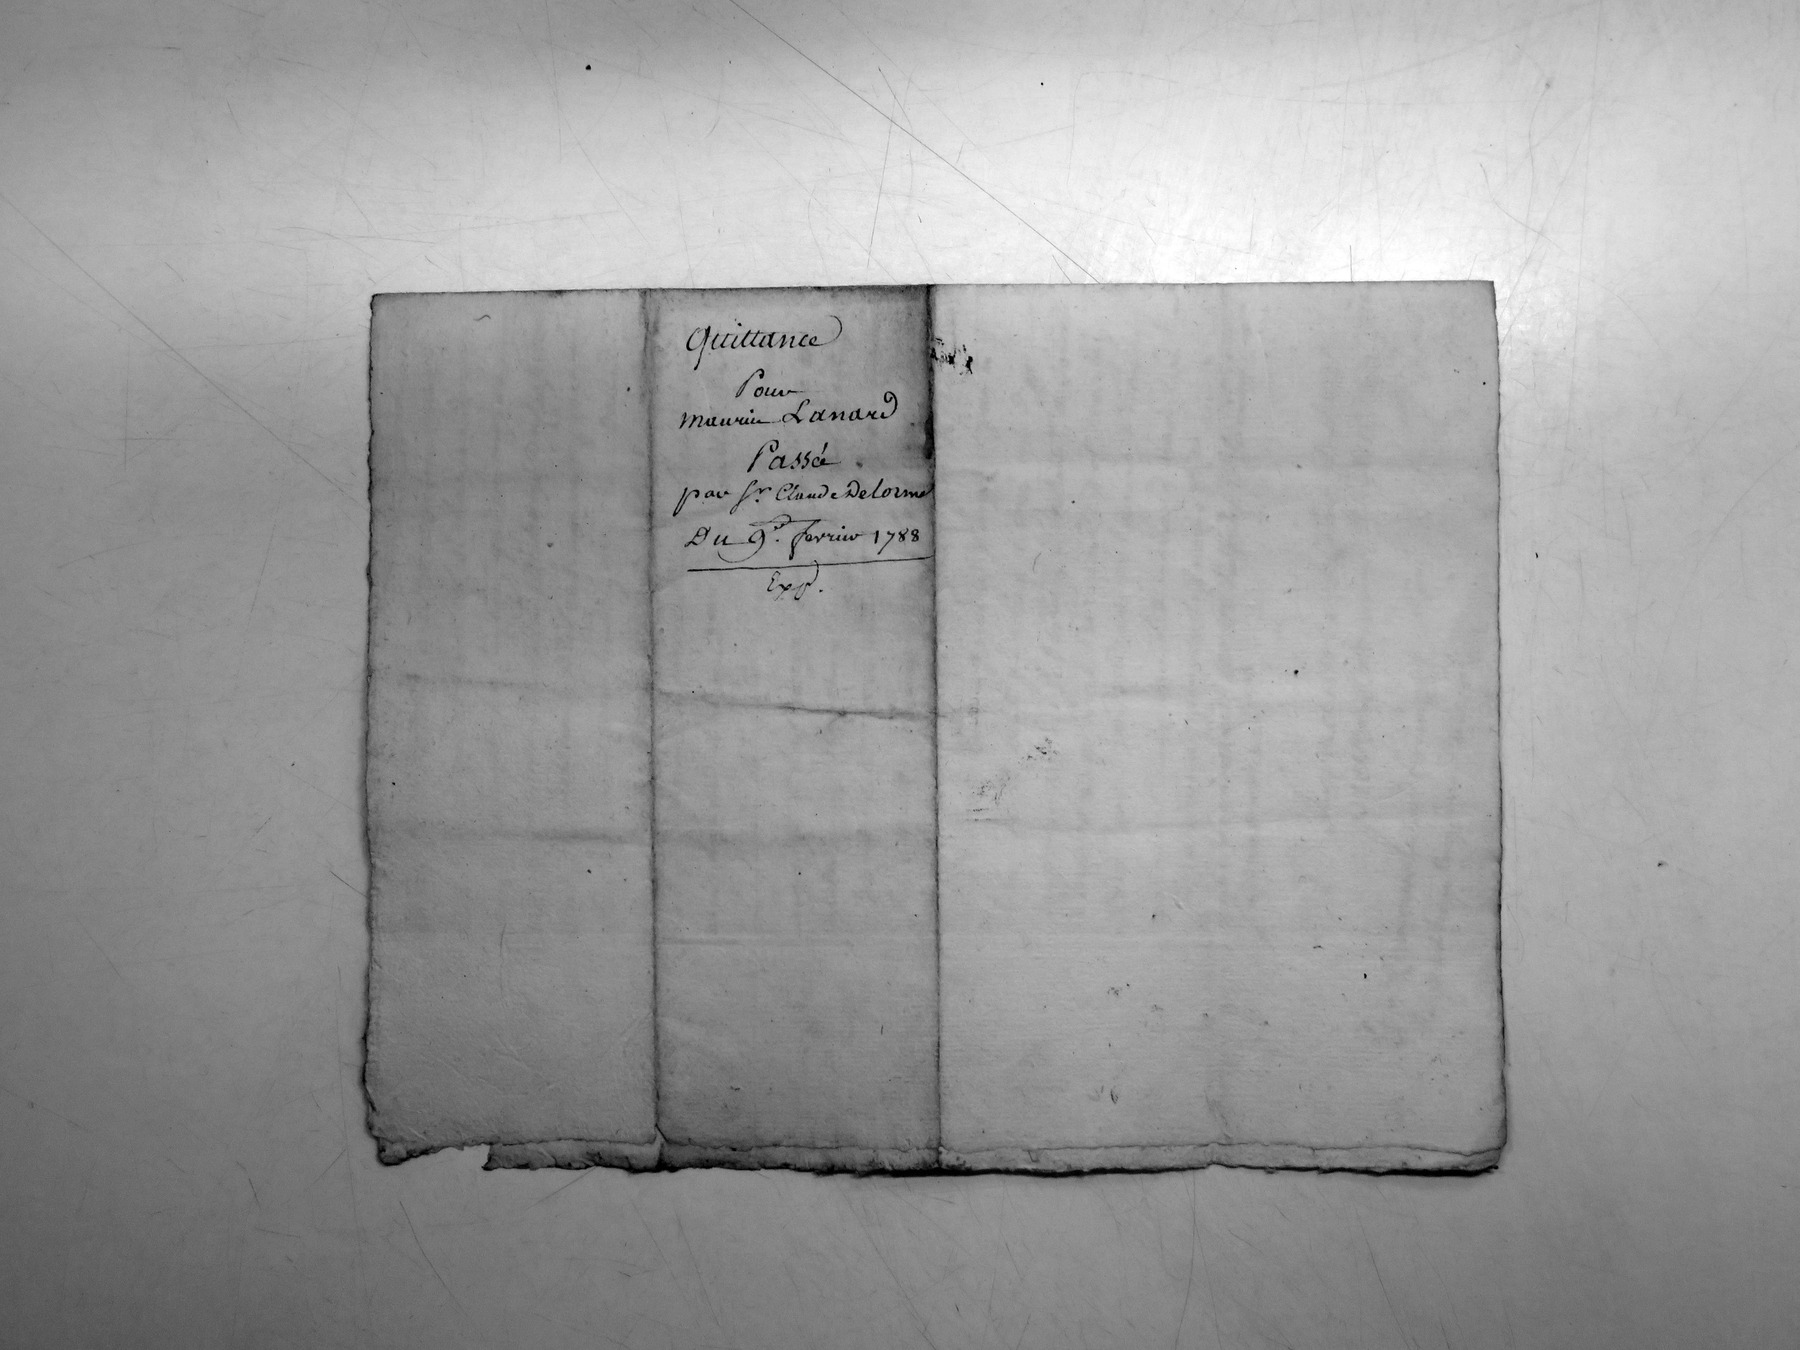 Quittance
Pour
maurice Lanard
Passé
par Sr. Claude Delorme
Du 9e. fevrier 1788
Expd.